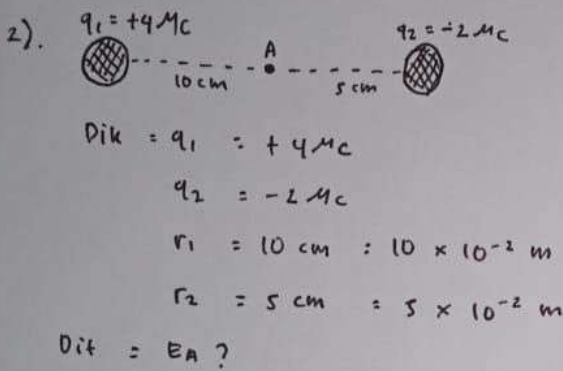 2). q₁ = +4 Mc q₂ = -2 Mc
A
10 cm 5 cm
Dik = q₁ = + 4 Mc
q₂ = -2 Mc
r₁ = 10 cm = 10 × 10⁻² m
r₂ = 5 cm = 5 × 10⁻² m
Dit = EA ?